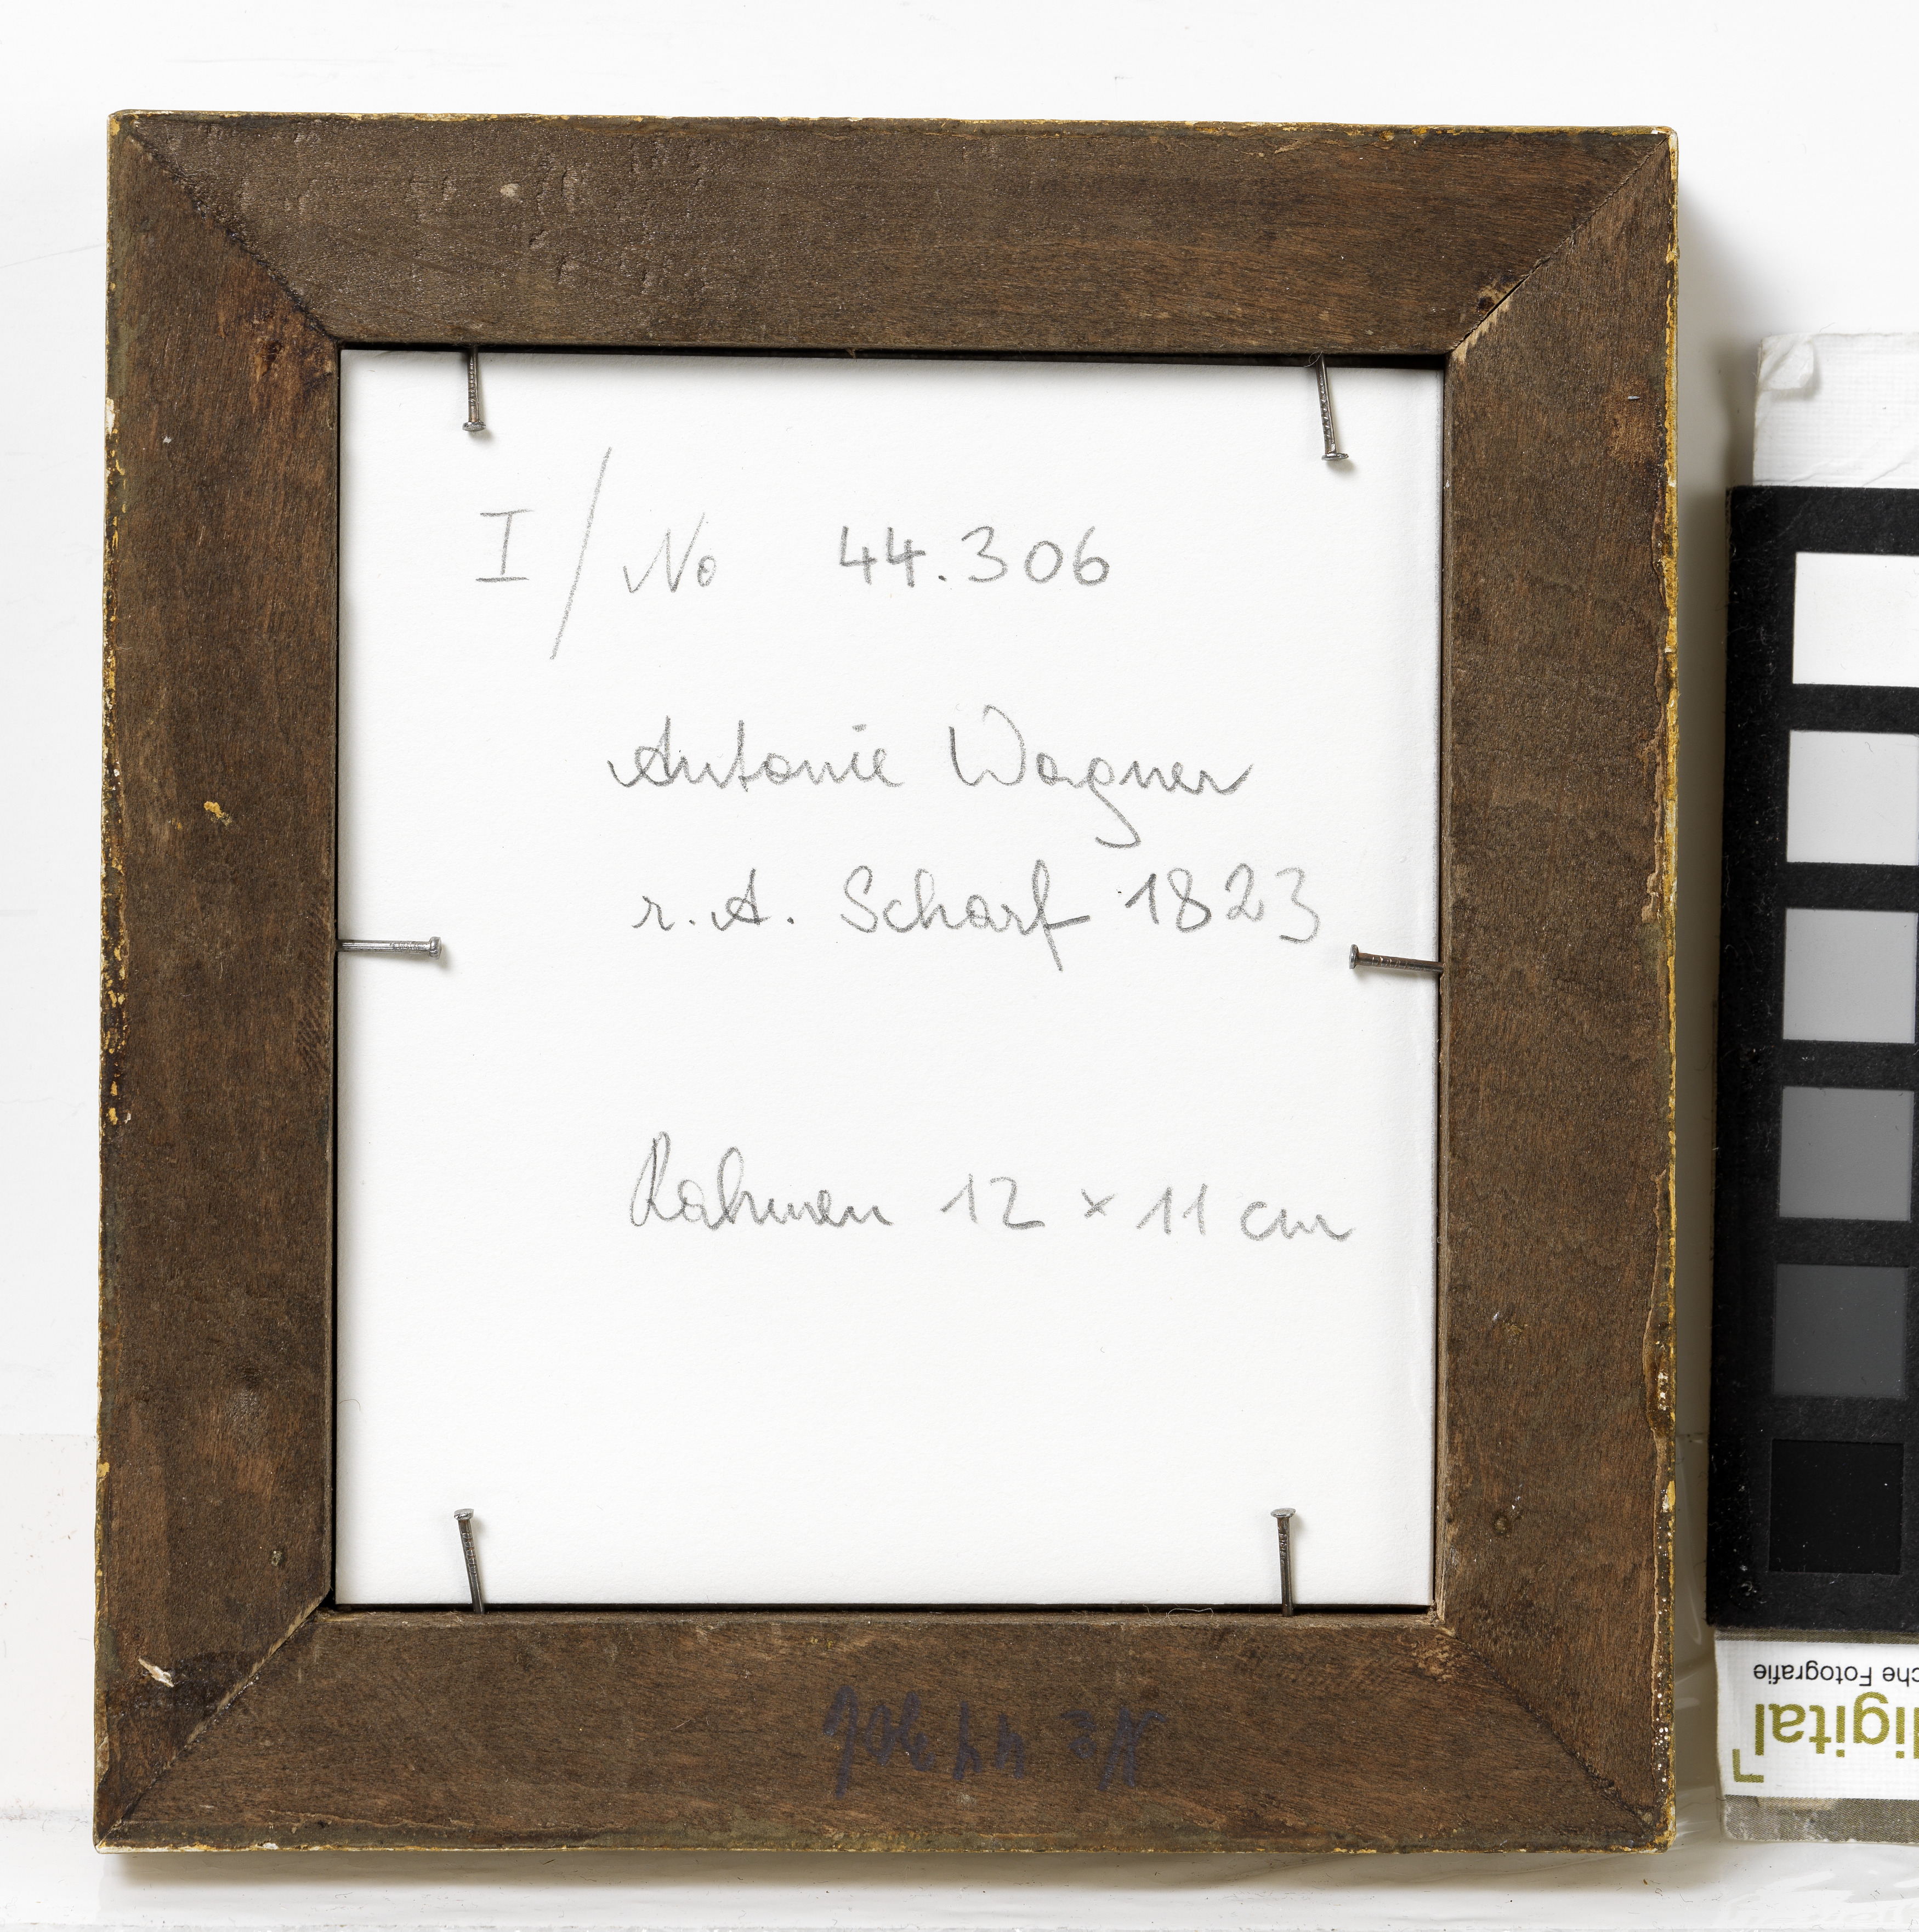 I / No 44.306
Antonie Wagner
r. A. Scharf 1823
Rahmen 12 x 11 cm
No 44306
che Fotografie
digital